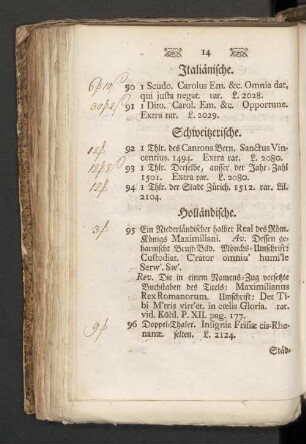 14
Italiänische.
90 1 Scudo. Carolus Em. &c. Omnia dat,
qui justa negat. rar. L. 2028.
91 1 Dito. Carol. Em. &c. Opportune.
Extra rar. L. 2029.
Schweitzerische.
12 f. 92 1 Thlr. des Cantons Bern. Sanctus Vin-
centius. 1494. Extra rar. L. 2080.
93 1 Thlr. Derselbe, ausser der Jahr-Zahl
1501. Extra rar. L. 2080.
12 f. 94 1 Thlr. der Stadt Zürich. 1512. rar. Lil.
2104.
Holländische.
3 f. 95 Ein Niederländischer halber Real des Röm.
Königs Maximiliani. Av. Dessen ge-
harnischt Brust-Bild. Mönchs-Umschrift:
Custodiat. C'rator omniu' humi'le
Serw'. Sw'.
Rev. Die in einem Namens-Zug versetzte
Buchstaben des Tituls: Maximilianus
Rex Romanorum. Umschrift: Det Ti-
bi M'tris virt'et. in cœlis Gloria. rar.
vid. Köhl. P. XII. pag. 177.
9 f. 96 Doppel-Thaler. Insignia Frisiæ cis-Rhe-
nanæ. selten. L. 2124.
Städ-